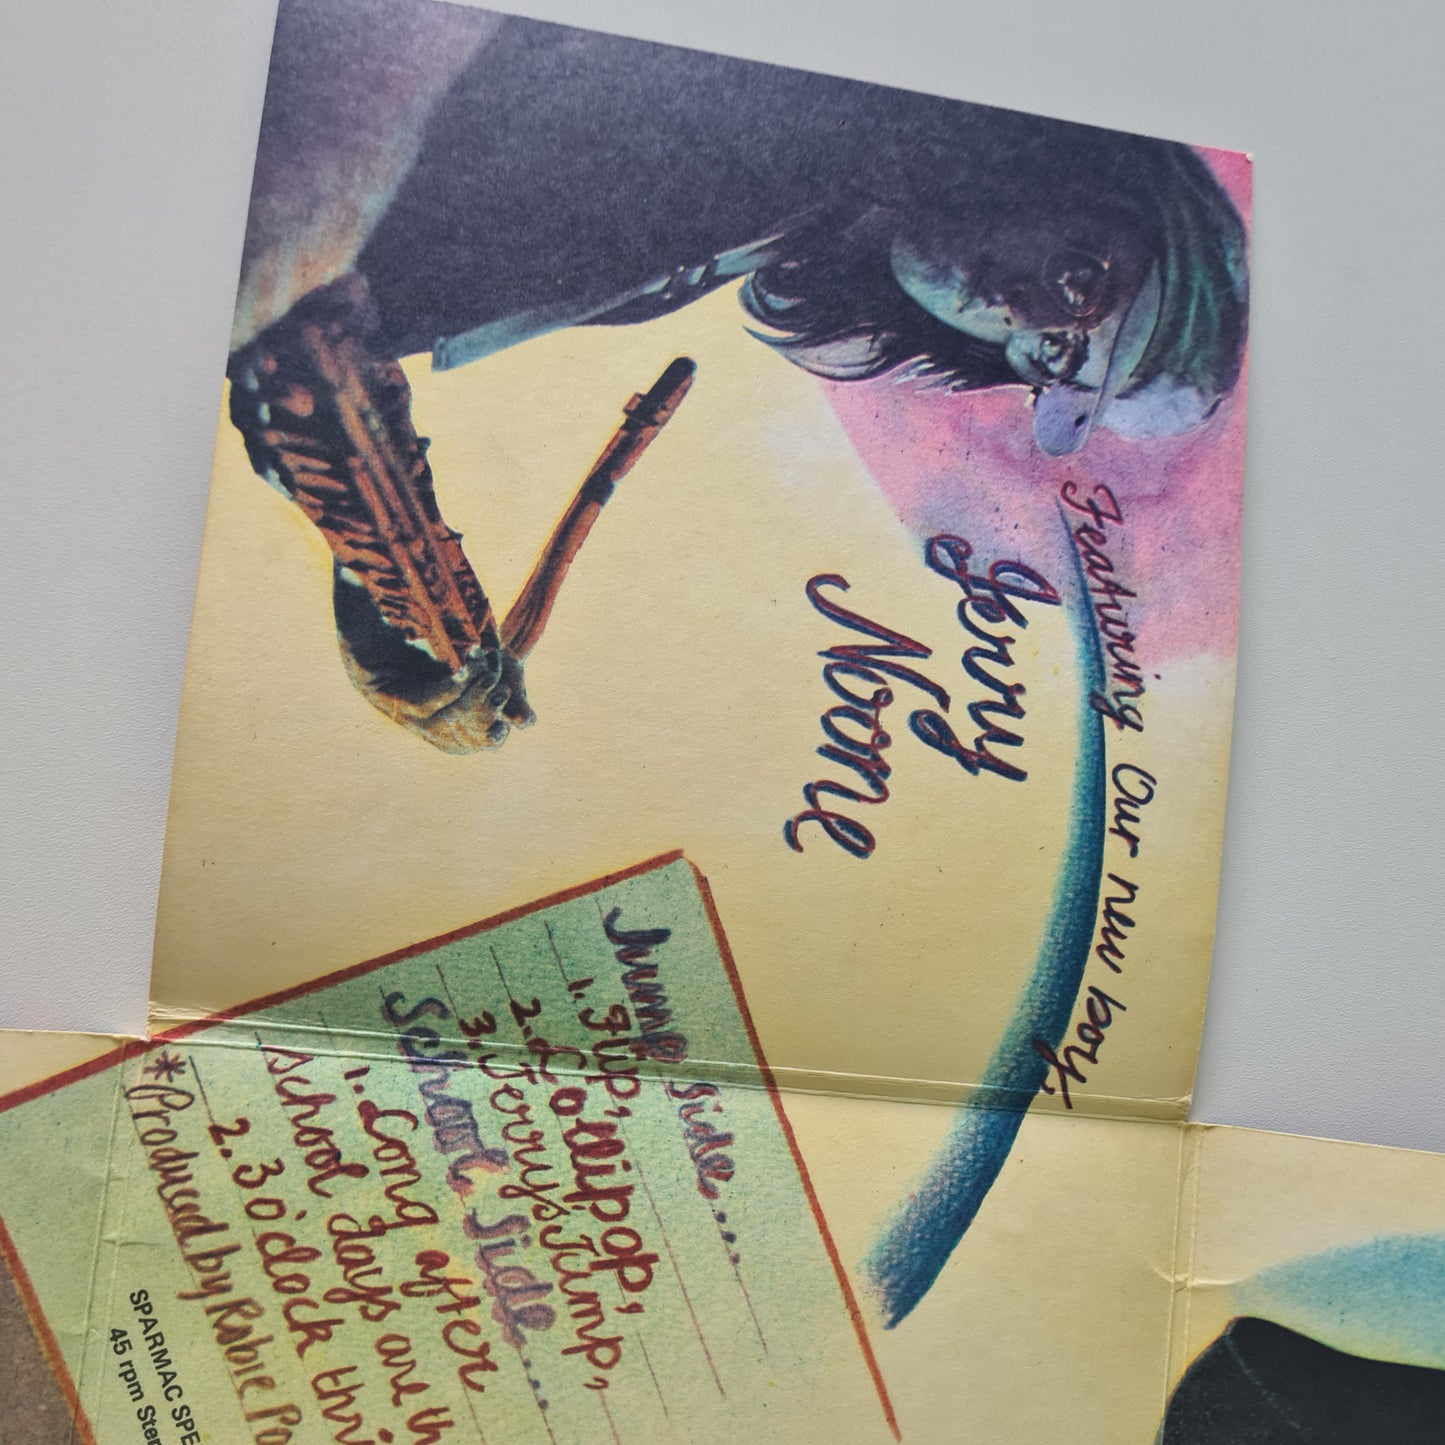 Featuring Our new boy.
Jerry
Noone
Jump Side....
1. Flip,
2. Lollipop,
3. Jerry's Jump,
School Side....
1. Long after
school days are th
2. 3 o'clock thri
*Produced by Robie Po
SPARMAC SPE
45 rpm Ster